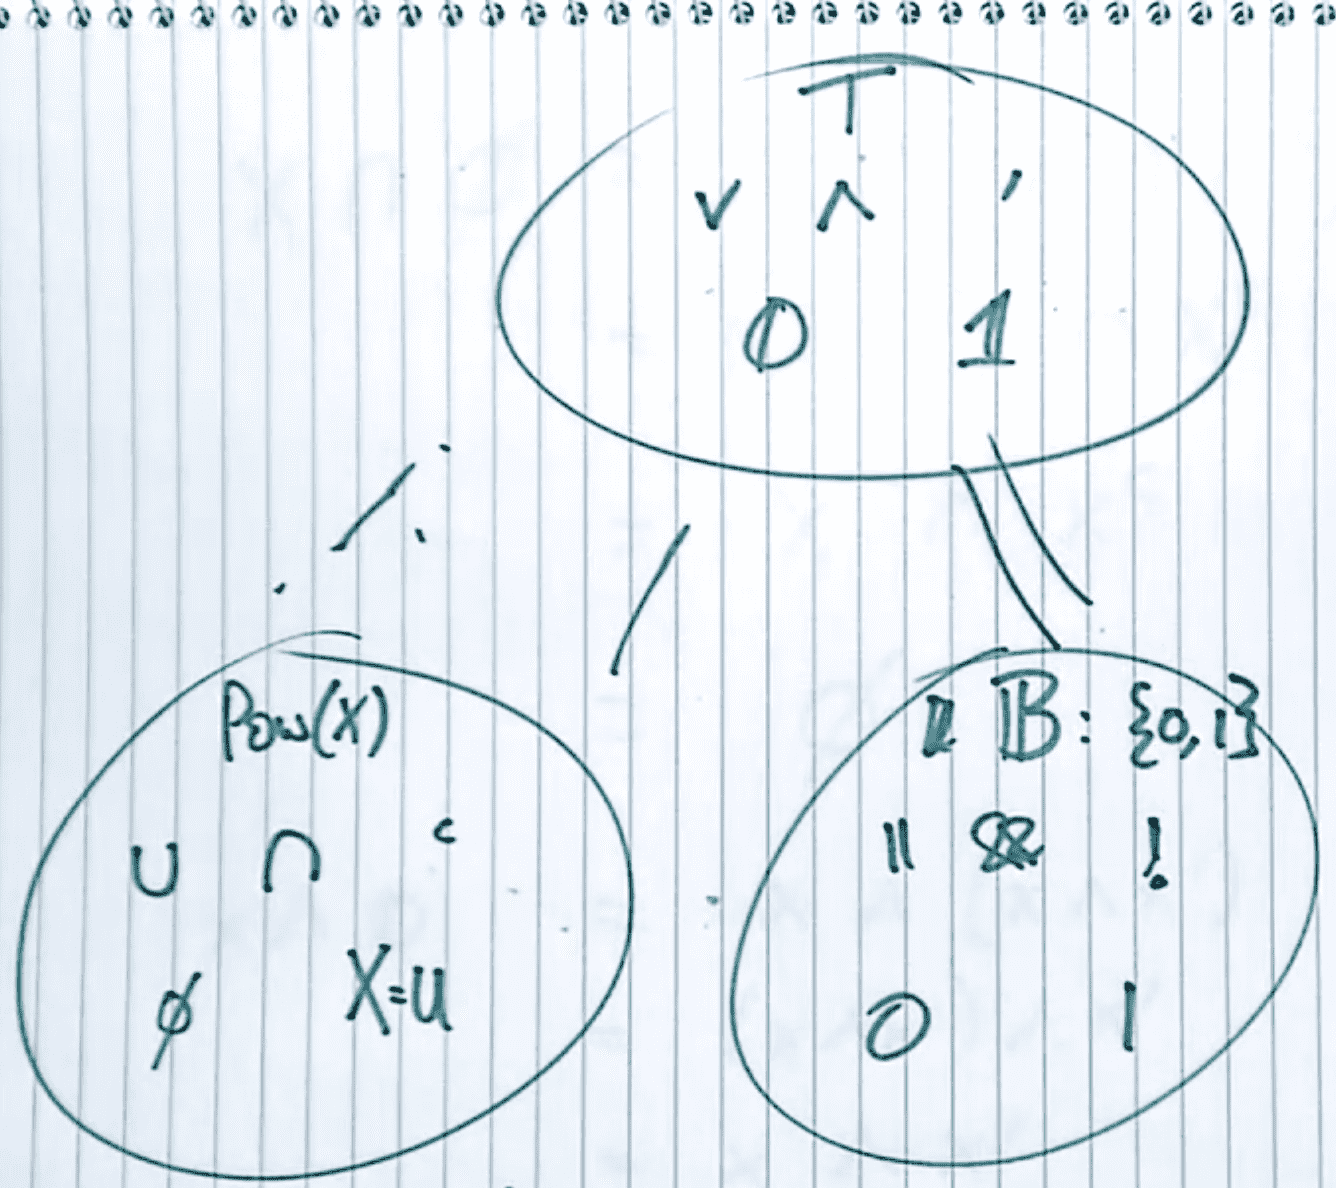 T
∨ ∧ ′
𝟘 𝟙
Pow(X)
∪ ∩ c
∅ X=U
𝔹: {0,1}
|| && !
0 1